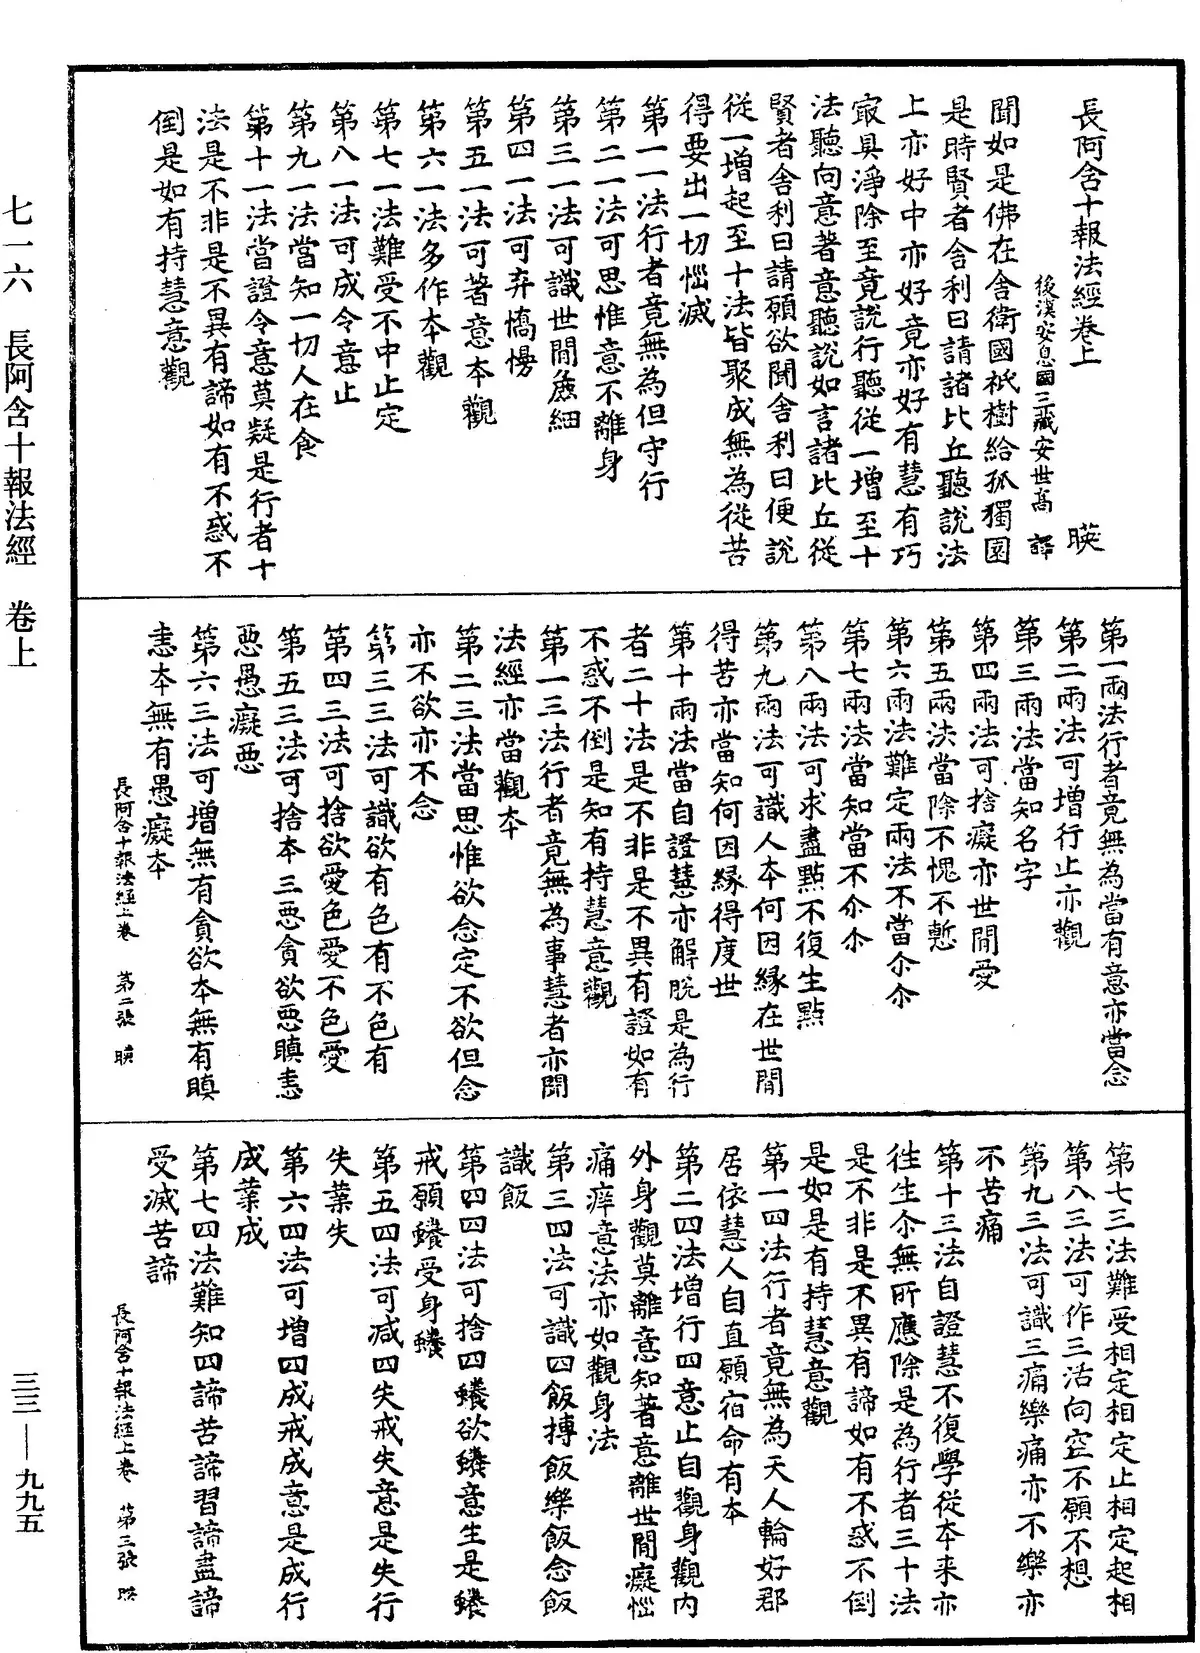 長阿含十報法經卷上 暎
後漢安息國三藏安世高 譯
聞如是佛在舍衛國祇樹給孤獨園
是時賢者舍利曰請諸比丘聽說法
上亦好中亦好竟亦好有慧有巧
最具淨除至竟說行聽從一增至十
法聽向意著意聽說如言諸比丘從
賢者舍利曰請願欲聞舍利曰便說
從一增起至十法皆聚成無為從苦
得要出一切惱滅
第一一法行者竟無為但守行
第二一法可思惟意不離身
第三一法可識世間麁細
第四一法可弃憍慢
第五一法可著意本觀
第六一法多作本觀
第七一法難受不中止定
第八一法可成令意止
第九一法當知一切人在食
第十一法當證令意莫疑是行者十
法是不非是不異有諦如有不惑不
倒是如有持慧意觀
第一兩法行者竟無為當有意亦當念
第二兩法可增行止亦觀
第三兩法當知名字
第四兩法可捨癡亦世間愛
第五兩法當除不愧不慙
第六兩法難定兩法不當尒尒
第七兩法當知當不尒尒
第八兩法可求盡點不復生點
第九兩法可識人本何因緣在世間
得苦亦當知何因緣得度世
第十兩法當自證慧亦解脫是為行
者二十法是不非是不異有證如有
不惑不倒是知有持慧意觀
第一三法行者竟無為事慧者亦聞
法經亦當觀本
第二三法當思惟欲念定不欲但念
亦不欲亦不念
第三三法可識欲有色有不色有
第四三法可捨欲愛色愛不色愛
第五三法可捨本三惡貪欲惡瞋恚
惡愚癡惡
第六三法可增無有貪欲本無有瞋
恚本無有愚癡本
長阿含十報法經上卷 第二張 暎
第七三法難受相定相定止相定起相
第八三法可作三活向空不願不想
第九三法可識三痛樂痛亦不樂亦
不苦痛
第十三法自證慧不復學從本来亦
往生尒無所應除是為行者三十法
是不非是不異有諦如有不惑不倒
是如是有持慧意觀
第一四法行者竟無為天人輪好郡
居依慧人自直願宿命有本
第二四法增行四意止自觀身觀內
外身觀莫離意知著意離世間癡惱
痛痒意法亦如觀身法
第三四法可識四飯摶飯樂飯念飯
識飯
第四四法可捨四蠽欲蠽意生是蠽
戒願蠽受身蠽
第五四法可減四失戒失意是失行
失業失
第六四法可增四成戒成意是成行
成業成
第七四法難知四諦苦諦習諦盡諦
受滅苦諦
長阿含十報法經上卷 第三張 暎
七一六 長阿含十報法經 卷上
三三—九九五